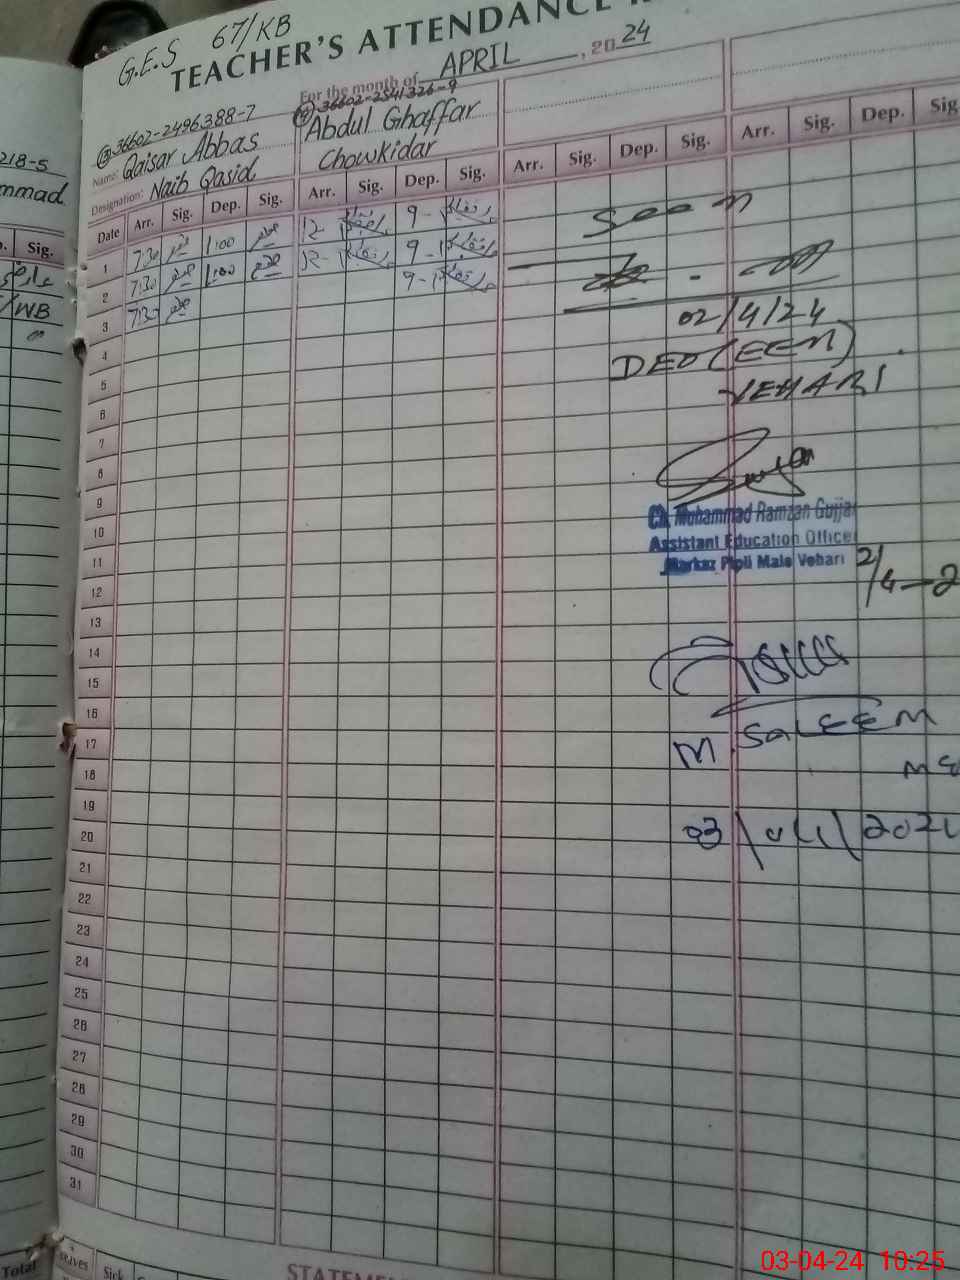 G.E.S 67/KB
TEACHER'S ATTENDANCE
For the month of APRIL, 2024
36602-2496388-7
36602-2541326-9
Name: Qaisar Abbas
Abdul Ghaffar
Designation: Naib Qasid
Chowkidar
218-5
mmad
Date Arr. Sig. Dep. Sig. Arr. Sig. Dep. Sig. Arr. Sig. Dep. Sig. Arr. Sig. Dep. Sig.
Sig.
1 7:30 1:00 12- 9-
2 7:30 1:00 12- 9-
3 7:30 9-
4
5
6
7
8
9
10
11
12
13
14
15
16
17
18
19
20
21
22
23
24
25
26
27
28
29
30
31
/WB
Seen
02/4/24
DEO (EEM)
VEHARI
Ch. Muhammad Ramzan Gujjar
Assistant Education Officer
Markaz Pipli Male Vehari
2/4-2
M. SALEEM
03/04/202
Total
Sick
STATEME
03-04-24 10:25